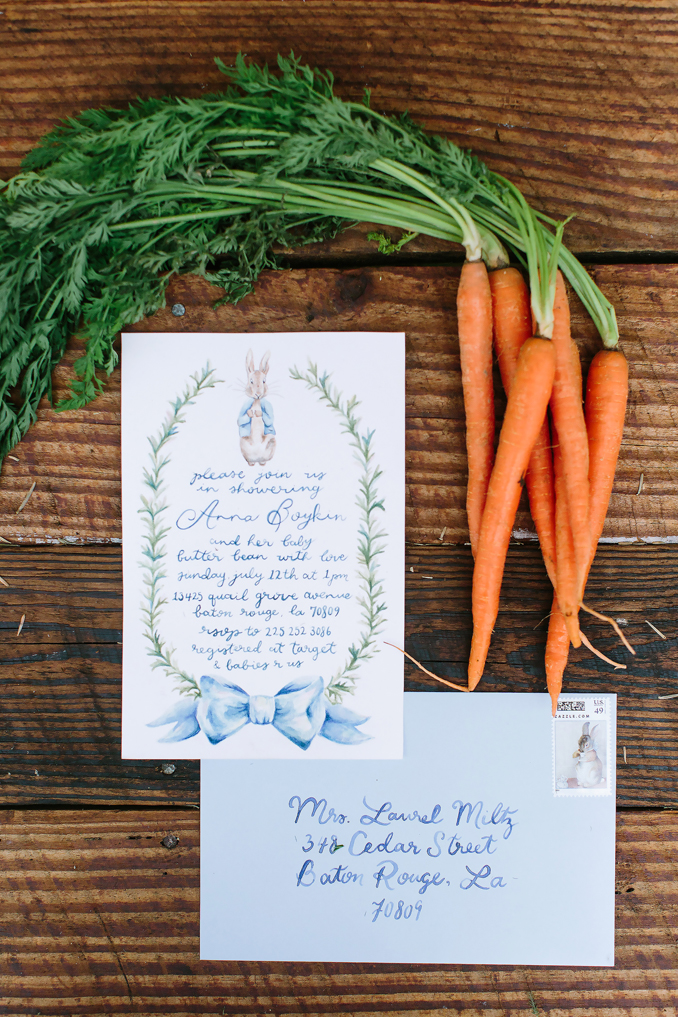 please join us
in showering
Anna Boykin
and her baby
butter bean with love
sunday july 12th at 1pm
15425 quail grove avenue
baton rouge, la 70809
rsvp to 225 252 3086
registered at target
& babies r us
U.S.
49
ZAZZLE.COM
Mrs. Laurel Miltz
348 Cedar Street
Baton Rouge, La
70809